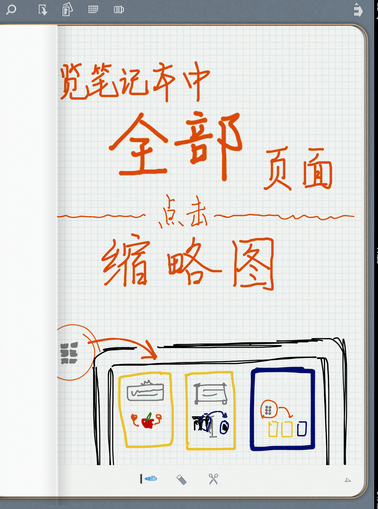 览笔记本中
全部
页面
点击
缩略图